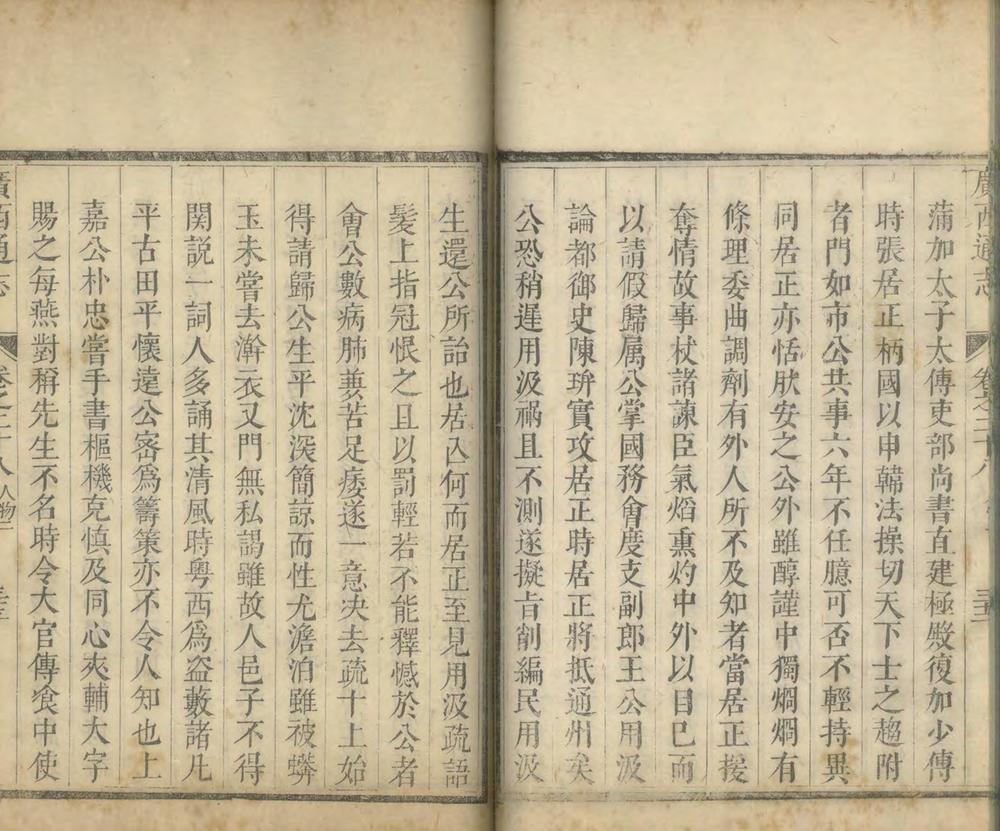 廣西通志 卷之二十八
蒲加太子太傅吏部尚書直建極殿復加少傅
時張居正柄國以申韓法操切天下士之趨附
者門如市公共事六年不任臆可否不輕持異
同居正亦恬肰安之公外雖醇謹中獨烱烱有
條理委曲調劑有外人所不及知者當居正援
奪情故事杖諸諫臣氣焰熏灼中外以目已而
以請假歸属公掌國務會度支副郎王公用汲
論都御史陳玠實攻居正時居正將抵通州矣
公恐稍遲用汲禍且不測遂擬旨削編民用汲
生還公所詒也居亾何而居正至見用汲疏語
髮上指冠恨之且以罰輕若不能釋憾於公者
會公數病肺兼苦足痿遂一意决去疏十上始
得請歸公生平沈深簡諒而性尤澹泊雖被蟒
玉未嘗去澣衣又門無私謁雖故人邑子不得
関說一詞人多誦其清風時粤西爲盗藪諸凡
平古田平懷遠公宻爲籌策亦不令人知也上
嘉公朴忠嘗手書樞機克慎及同心夾輔大字
賜之每燕對稱先生不名時令大官傳飡中使
廣西通志 卷之二十八 人物二